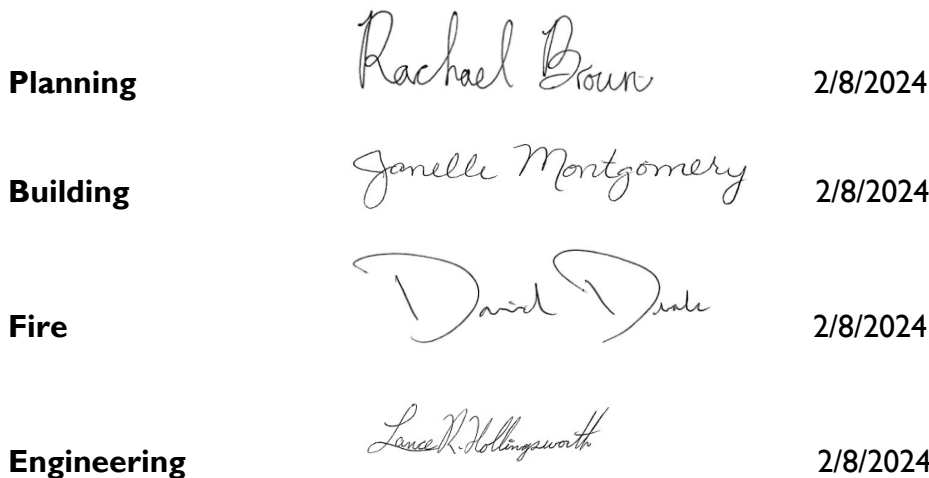 Planning Rachael Brown 2/8/2024
Building Janelle Montgomery 2/8/2024
Fire David 2/8/2024
Engineering Lance R. Hollingsworth 2/8/2024